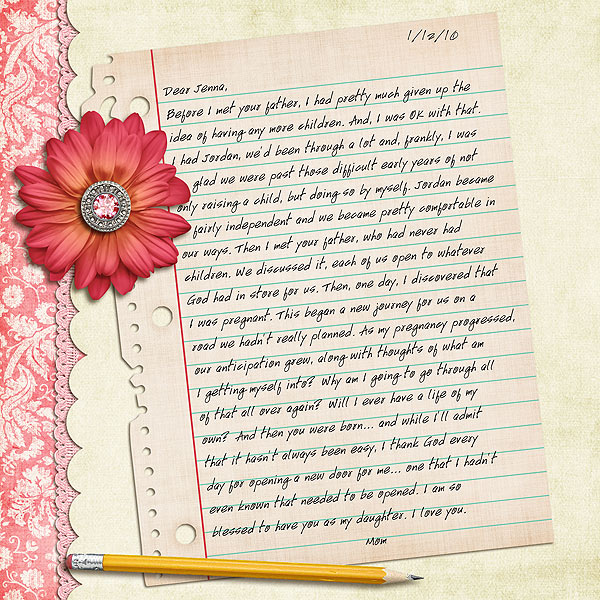 1/12/10
Dear Jenna,
Before I met your father, I had pretty much given up the
idea of having any more children. And, I was OK with that.
I had Jordan, we'd been through a lot and, frankly, I was
glad we were past those difficult early years of not
only raising a child, but doing so by myself. Jordan became
fairly independent and we became pretty comfortable in
our ways. Then I met your father, who had never had
children. We discussed it, each of us open to whatever
God had in store for us. Then, one day, I discovered that
I was pregnant. This began a new journey for us on a
road we hadn't really planned. As my pregnancy progressed,
our anticipation grew, along with thoughts of what am
I getting myself into? Why am I going to go through all
of that all over again? Will I ever have a life of my
own? And then you were born... and while I'll admit
that it hasn't always been easy, I thank God every
day for opening a new door for me... one that I hadn't
even known that needed to be opened. I am so
blessed to have you as my daughter. I love you.
Mom